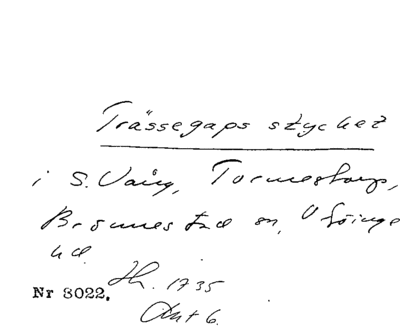 Trässegaps stycket
i S. Vång, Tormestorp,
Brönnestad sn, V Göinge
hd.
Nr 8022. Lh. 1735
Akt 6.